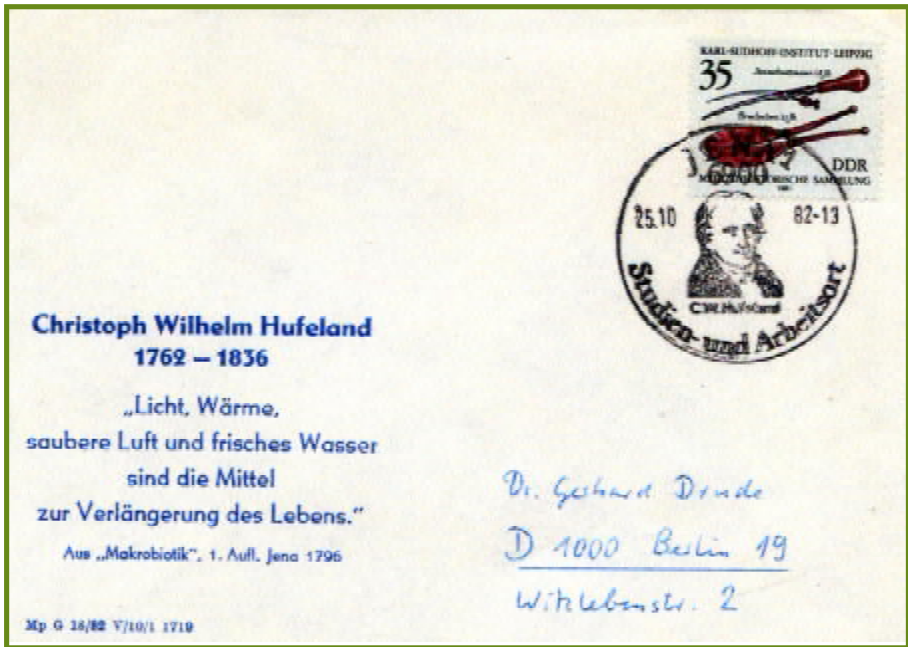 KARL-SUDHOFF-INSTITUT·LEIPZIG
35
DDR
SAMMLUNG
6900
25.10
82-13
C.W. Hufeland
Studien- und Arbeitsort
Christoph Wilhelm Hufeland
1762 – 1836
„Licht, Wärme,
saubere Luft und frisches Wasser
sind die Mittel
zur Verlängerung des Lebens.“
Aus „Makrobiotik“, 1. Aufl. Jena 1796
Dr. Gerhard Drude
D 1000 Berlin 19
Witzlebenstr. 2
Mp G 18/82 V/10/1 1719